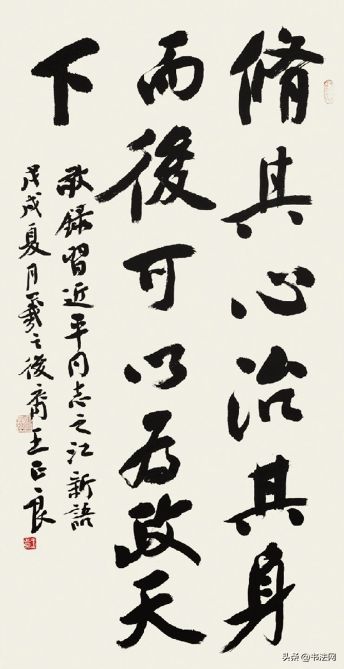 脩其心治其身
而後可以为政天
下
敬録習近平同志之江新語
戊戌夏月羲之後裔王正良
头条@书法网